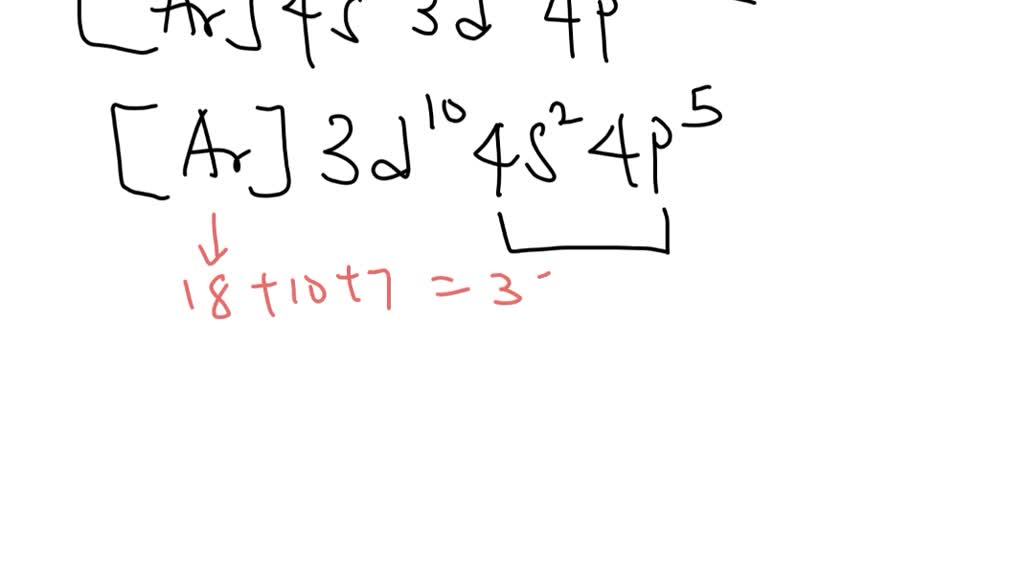 [Ar] 4s 3d 4p
[Ar] 3d¹⁰ 4s² 4p⁵
18 + 10 + 7 = 3